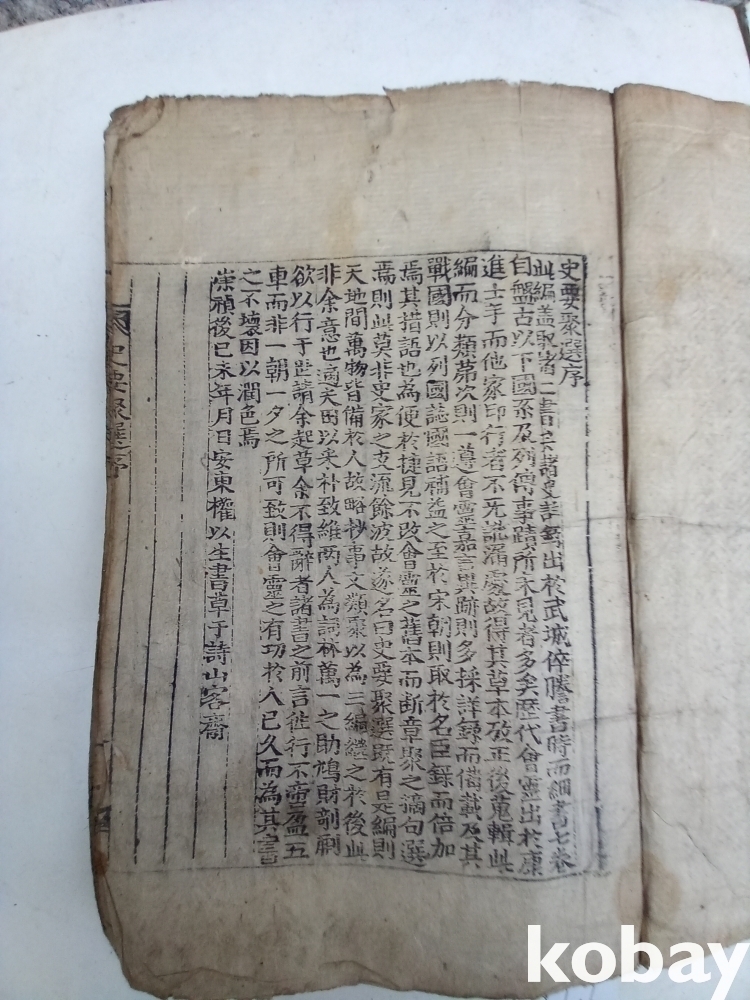 史要聚選序
此編盖取諸二書宗諸史記錄出於武城倅謄書時而細書七卷
自盤古以下國系及列傳事蹟所未見者多矣歷代會靈出於康
進士手而他家印行者不无訛漏處故得其草本攷正後蒐輯此
編而分類第次則一遵會靈嘉言異跡則多採詳錄而俻載及其
戰國則以列國誌國語補益之至於宋朝則取於名臣錄而倍加
焉其措語也為便於捷見不改會靈之舊本而断章聚之摘句選
焉則此莫非史家之支流餘波故遂名曰史要聚選既有是編則
天地間萬物皆備於人故略抄事文類聚以為三編継之於後此
非余意也適夫田以采朴致維兩人為詞林萬一之助鳩財剞劂
欲以行于世請余起草余不得辭者諸書之前言徃行不啻盈五
車而非一朝一夕之所可致則會靈之有功於人已久而為其言
之不壞因以潤色焉
崇禎後己未年月日安東權以生書草于詩山客齋
史要聚選序
kobay